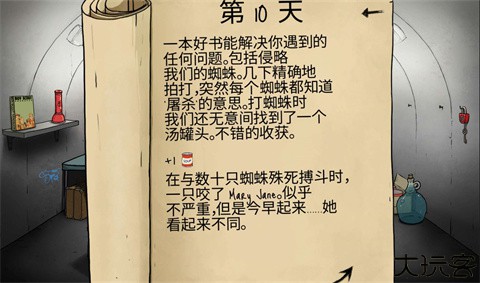 第 10 天
一本好书能解决你遇到的
任何问题。包括侵略
我们的蜘蛛。几下精确地
拍打,突然每个蜘蛛都知道
'屠杀'的意思。打蜘蛛时
我们还无意间找到了一个
汤罐头。不错的收获。
+1
在与数十只蜘蛛殊死搏斗时,
一只咬了 Mary Jane。似乎
不严重,但是今早起来……她
看起来不同。
大玩客